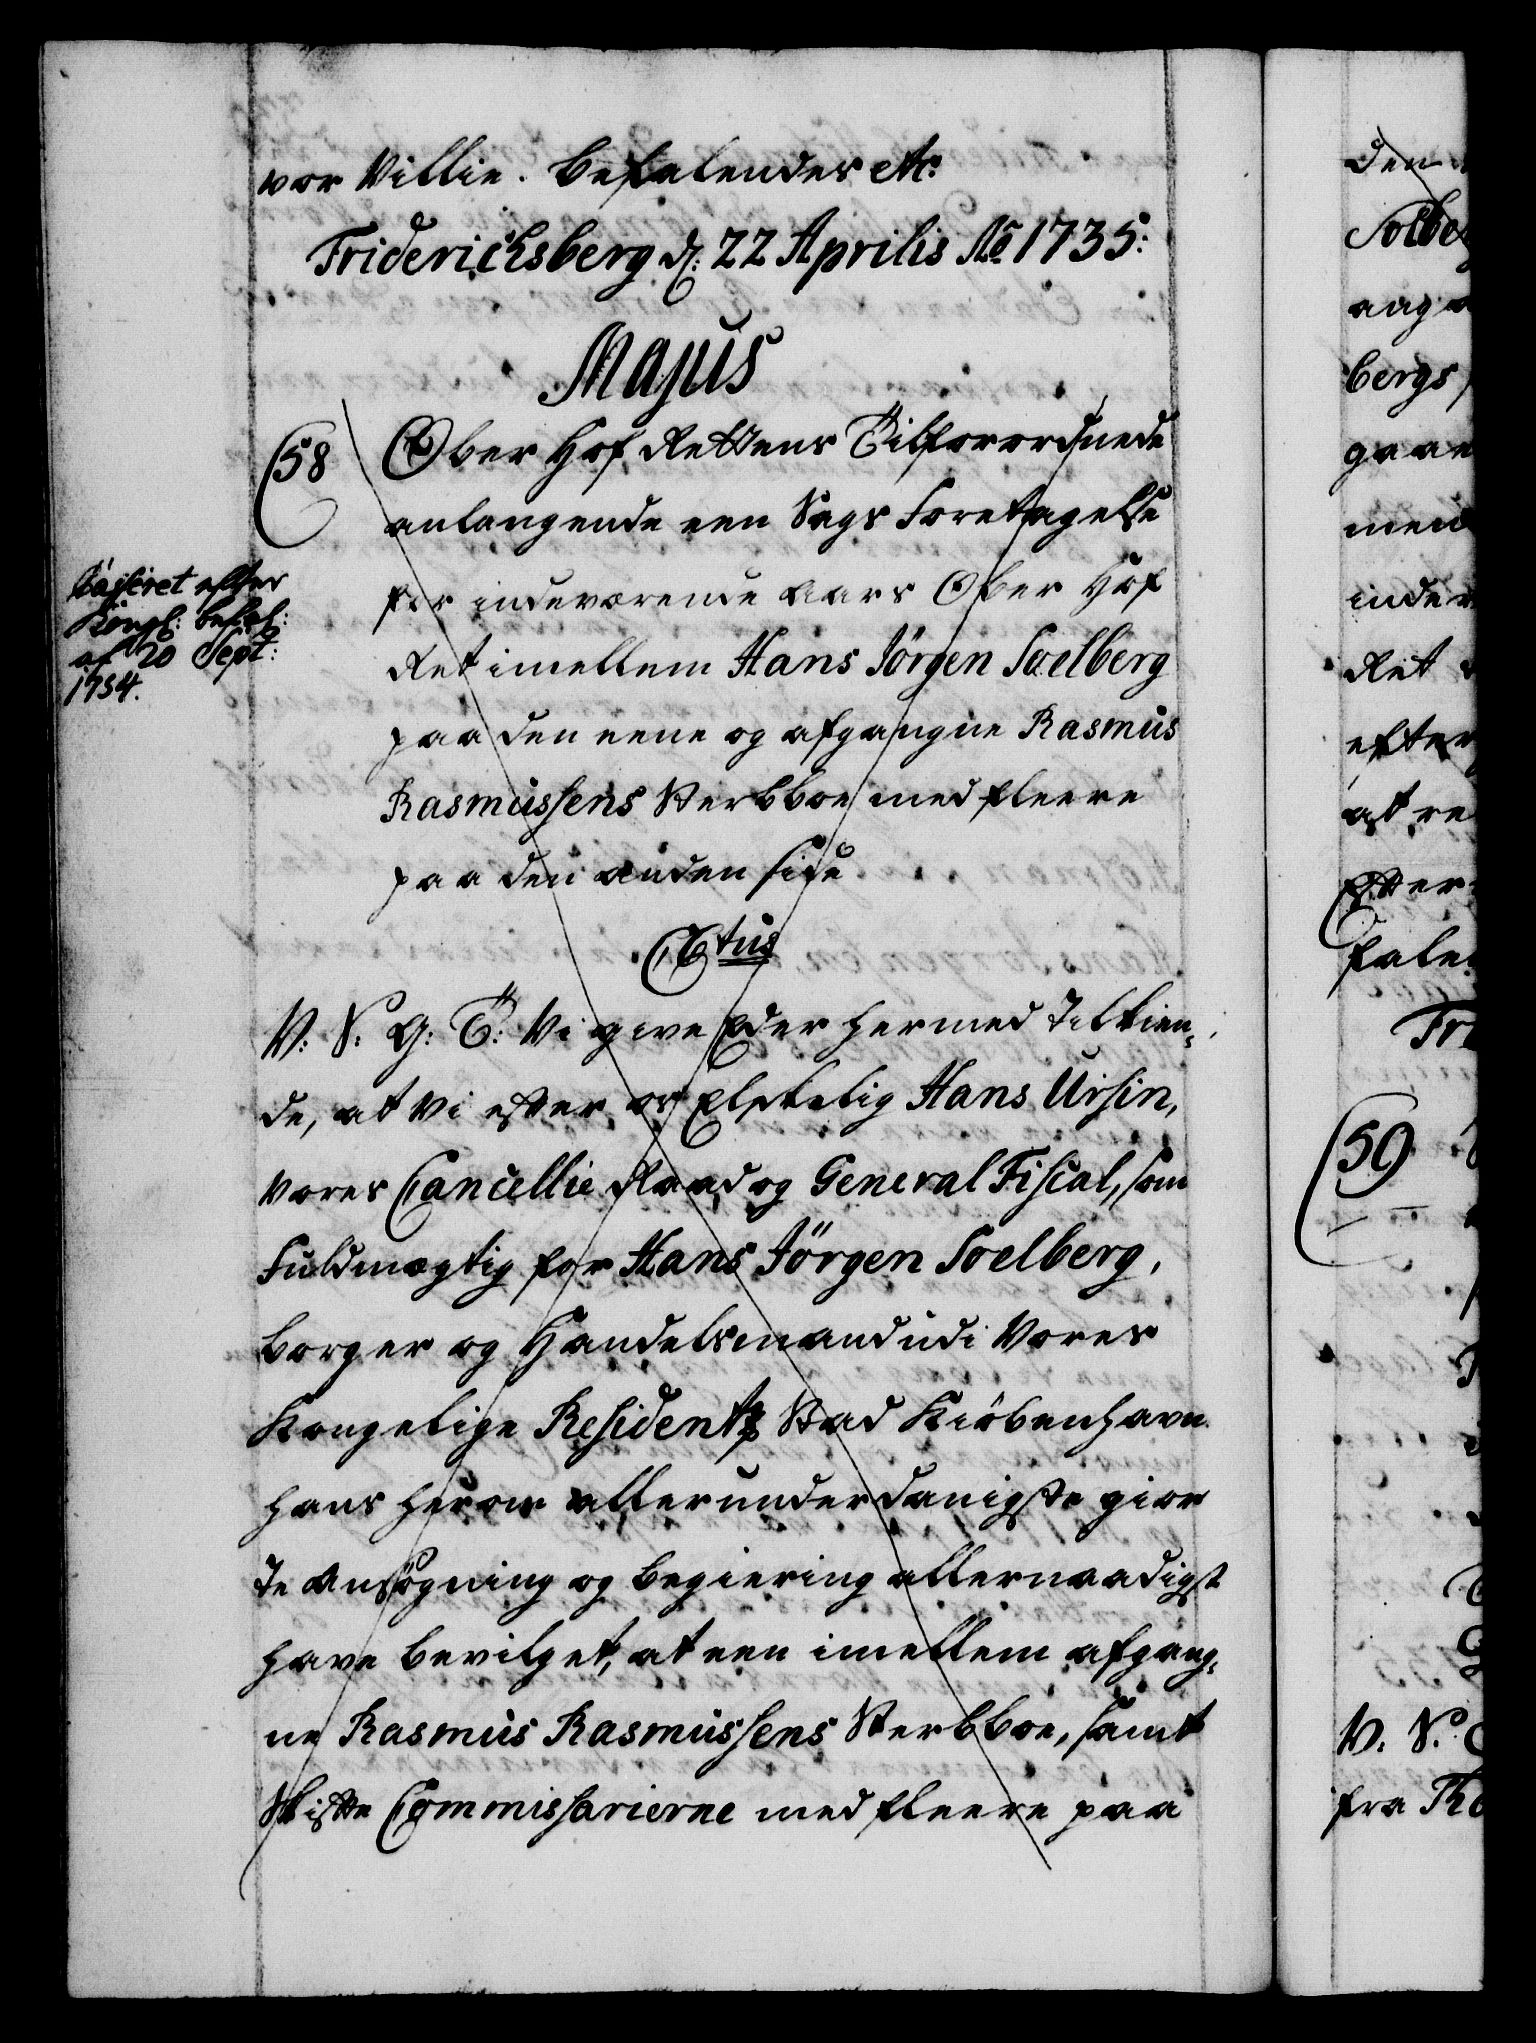 vor Villie. Befalendes etc:
Friderichsberg d: 22 Aprilis Ao 1735:
Majus
58
Ober Hof Rettens Tilforordnede
anlangende een Sags Foretagelse
for indeværende Aars Ober Hof
Ret imellem Hans Jörgen Soelberg
paa den eene og afgangne Rasmus
Rasmussens Sterbboe med fleere
paa den anden side
Casseret efter
Kongl: befal:
af 20 Sept:
1734.
C6tus
V: S: G: T: Vi give Eder hermed Tilkien-
de, at Vi efter os Elskelig Hans Ursin,
Vores Cancellie Raad og General Fiscal, som
Fuldmægtig for Hans Jörgen Soelberg,
borger og Handelsmand udi Vores
Kongelige Residentz Stad Kiöbenhavn
hans herom allerunderdanigste gior
te Ansögning og begiering allernaadigst
have bevilget, at een imellem afgang-
ne Rasmus Rasmussens Sterbboe, samt
Skifte Commissarierne med fleere paa
den
Solberg
bergs
gaae
men
inde
Ret
efter
at re
Efter
fale
Fri
59
V. S.
fra